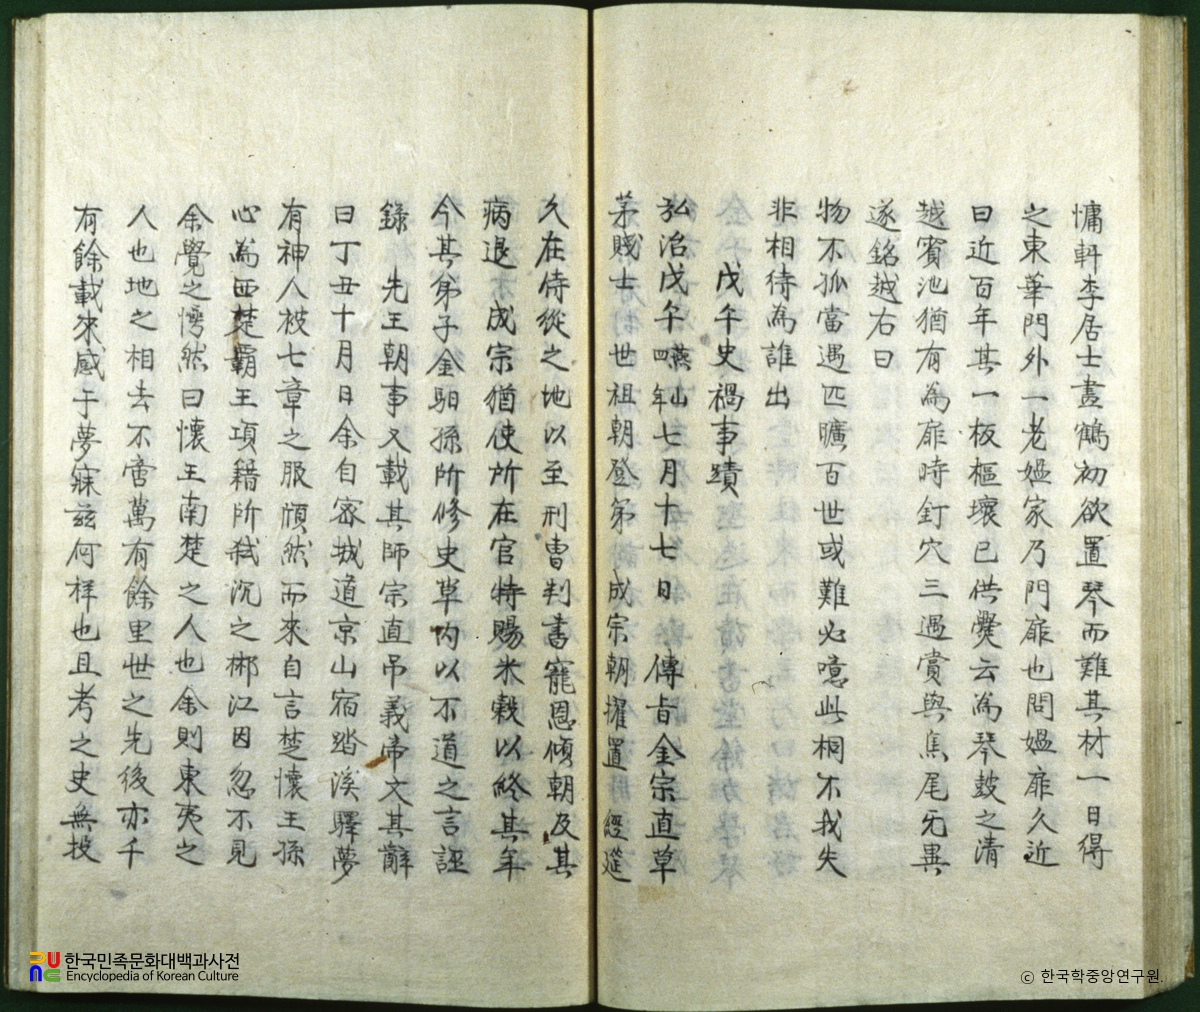 慵軒李居士畫鶴初欲置琴而難其材一日得
之東華門外一老媼家乃門扉也問媼扉久近
曰近百年其一板樞壞已供爨云為琴鼓之清
越賓池猶有為扉時釘穴三過賞與焦尾无異
遂銘越右曰
物不孤當遇匹曠百世或難必噫此桐不我失
非相待為誰出
戊午史禍事蹟
弘治戊午燕山四年七月十七日傳旨金宗直草
茅賤士世祖朝登第成宗朝擢置經筵
久在侍從之地以至刑曹判書寵恩傾朝及其
病退成宗猶使所在官特賜米穀以終其年
今其弟子金馹孫所修史草內以不道之言誣
錄先王朝事又載其師宗直吊義帝文其辭
曰丁丑十月日余自密城道京山宿踏溪驛夢
有神人被七章之服頎然而來自言楚懷王孫
心為西楚霸王項籍所弒沉之郴江因忽不見
余覺之愕然曰懷王南楚之人也余則東夷之
人也地之相去不啻萬有餘里世之先後亦千
有餘載來感于夢寐玆何祥也且考之史無投
한국민족문화대백과사전
Encyclopedia of Korean Culture
ⓒ 한국학중앙연구원.